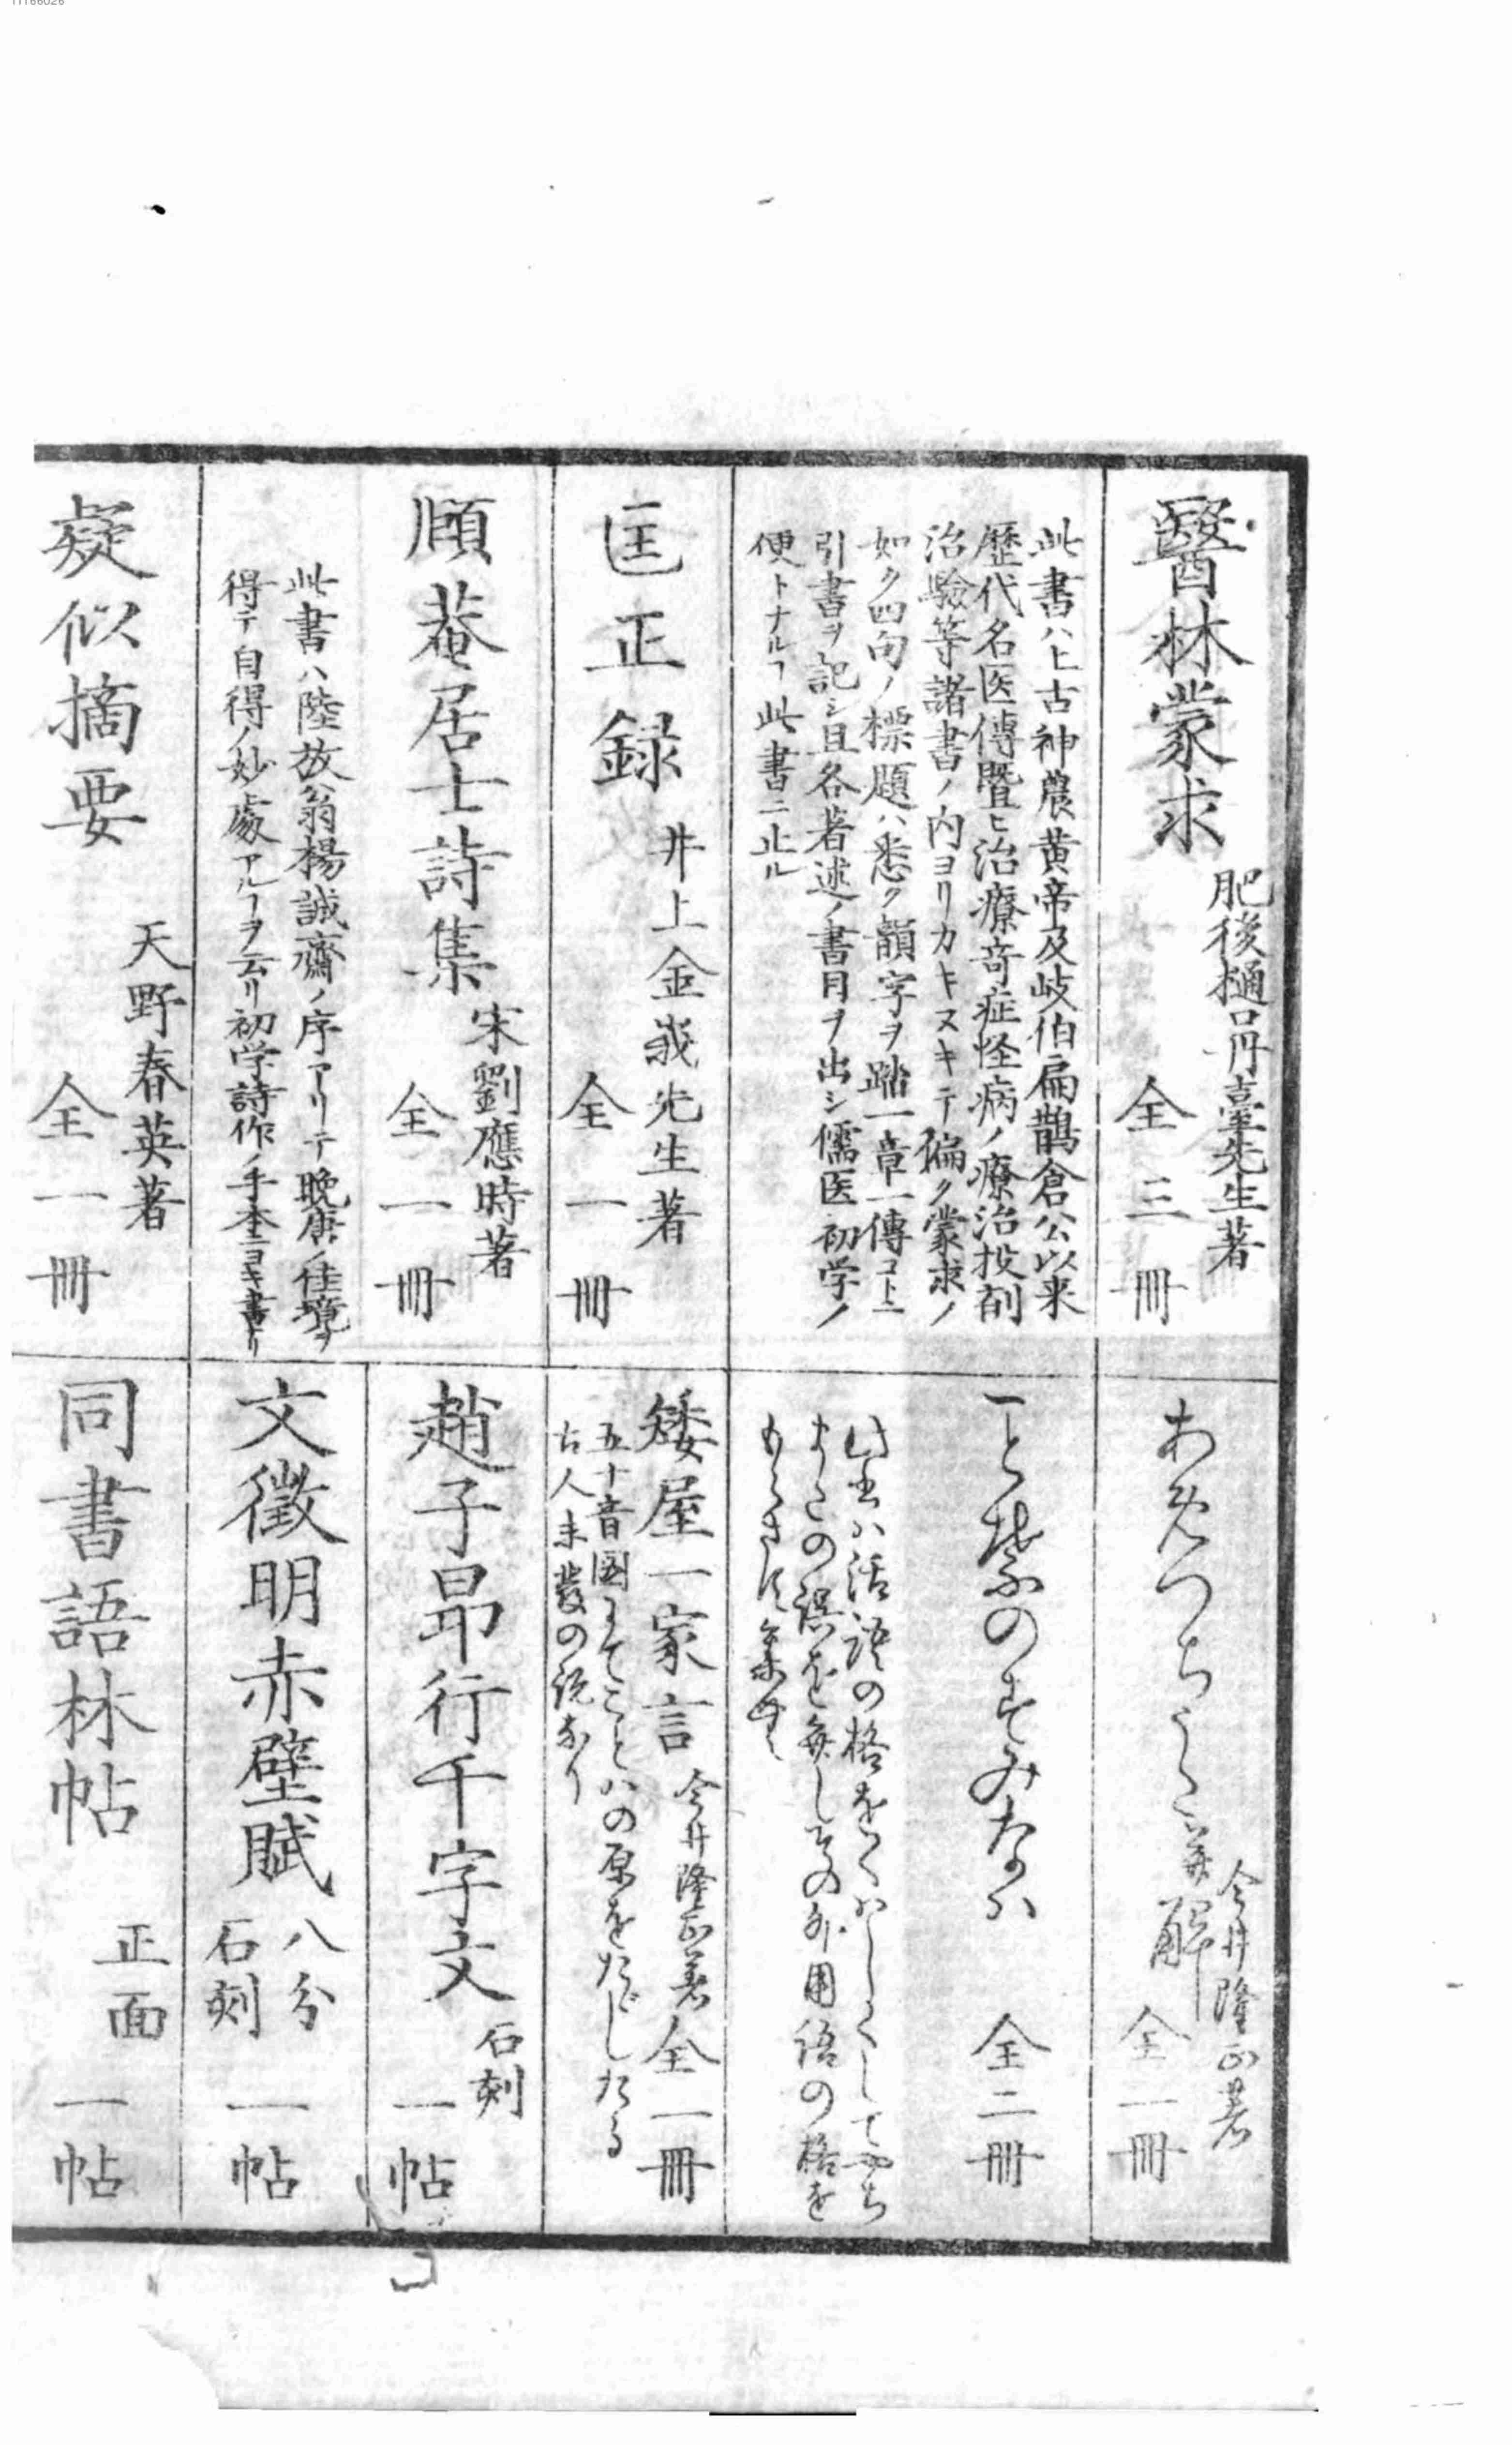 醫林蒙求
肥後樋口丹臺先生著
全三冊
此書ハ上古神農黄帝及岐伯扁鵲倉公以来
歴代名医傳曁ヒ治療奇症怪病ノ療治投剤
治驗等諸書ノ内ヨリカキヌキテ徧ク蒙求ノ
如ク四句ノ標題ハ悉ク韻字ヲ踏一章一傳コトニ
引書ヲ記シ且各著述ノ書目ヲ出シ儒医初学ノ
便トナルヿ此書ニ止ル
匡正録
井上金峩先生著
全一冊
頤菴居士詩集
宋劉應時著
全一冊
此書ハ陸放翁楊誠齋ノ序アリテ晩唐ノ佳境ヲ
得テ自得ノ妙處アルヿヲ云リ初学詩作ノ手本ニヨキ書ナリ
疑似摘要
天野春英著
全一冊
あめつちうた
解
今井隆正著
全一冊
ことばのすみなハ
全二冊
此書ハ活語の格をくハしくして
の誤を無しその外用語の格を
もらさず集
矮屋一家言
今井隆正著
全一冊
五十音圖にてことハの原をたゞしたる
古人未發の説なり
趙子昻行千字文
石刻
一帖
文徴明赤壁賦
八分
石刻
一帖
同書語林帖
正面
一帖